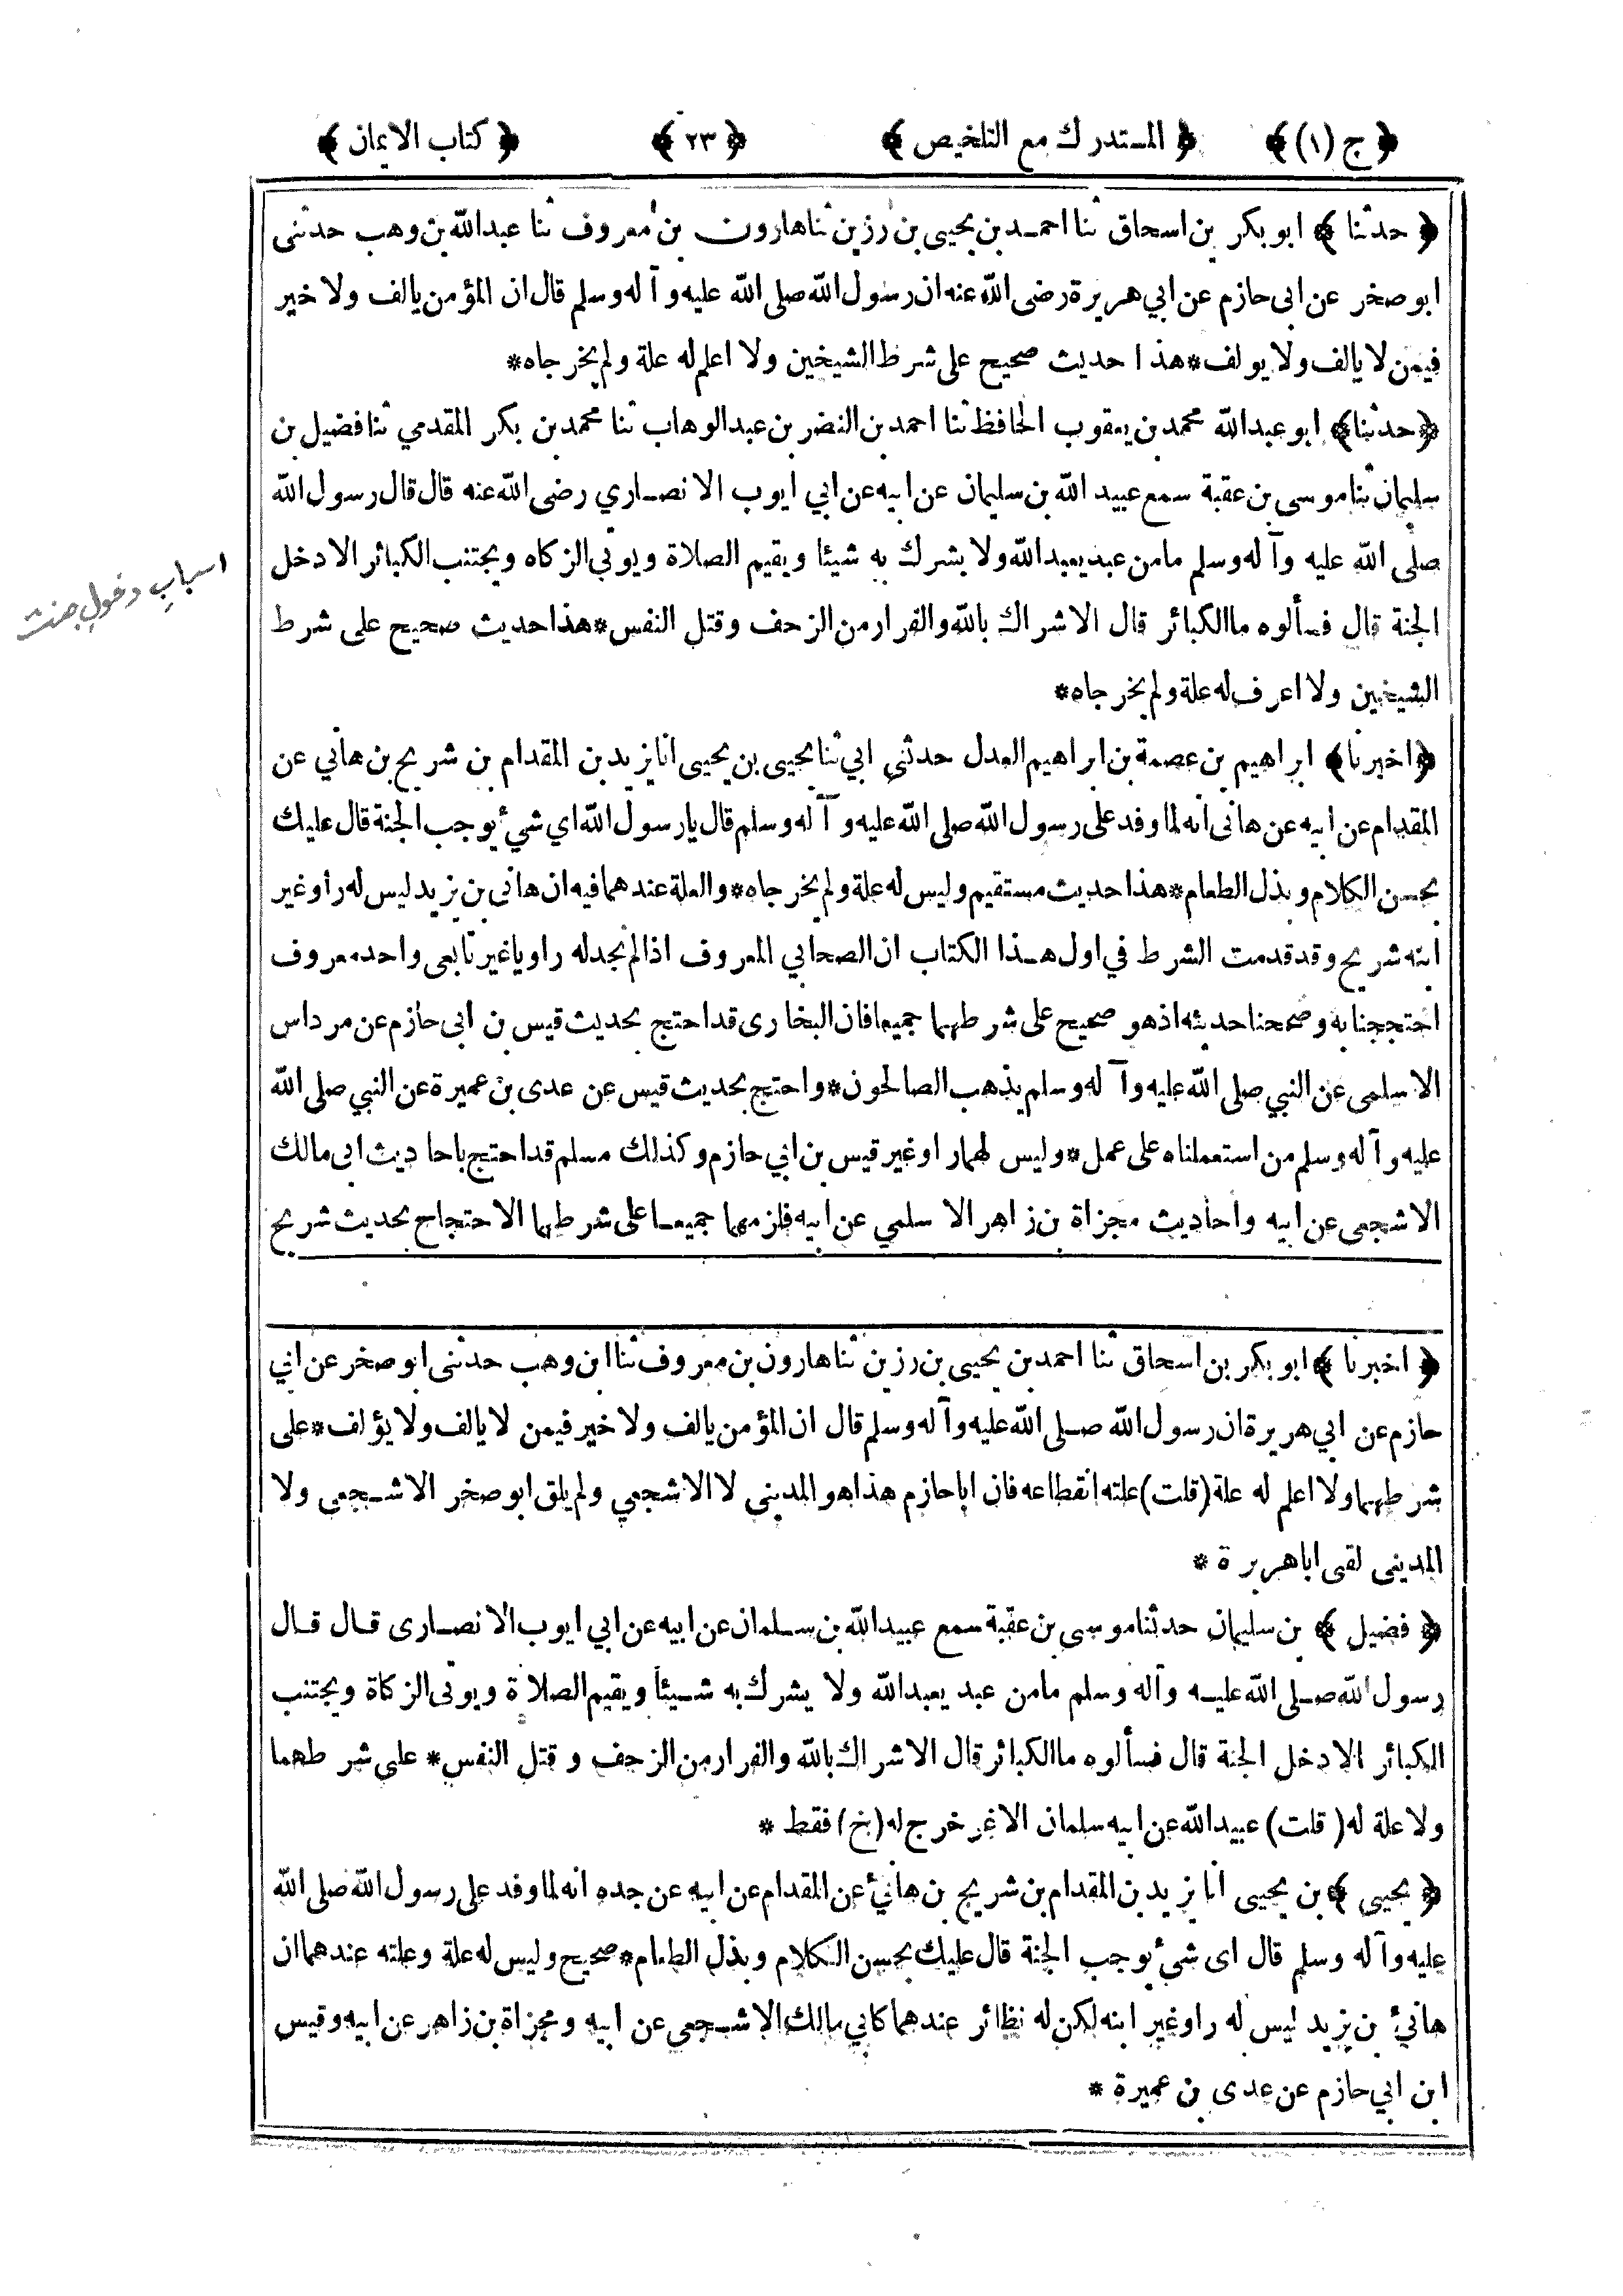 ﴿ ج (١) ﴾ ﴿ المستدرك مع التلخيص ﴾ ﴿ ٢٣ ﴾ ﴿ كتاب الايمان ﴾
﴿ حدثنا ﴾ ابو بكر بن اسحاق ثنا احمد بن يحيى بن رزين ثنا هارون بن معروف ثنا عبد الله بن وهب حدثنى
ابو صخر عن ابى حازم عن ابي هريرة رضى الله عنه ان رسول الله صلى الله عليه وآله وسلم قال ان المؤمن يالف ولا خير
فيمن لا يالف ولا يولف * هذا حديث صحيح على شرط الشيخين ولا اعلم له علة ولم يخرجاه *
﴿ حدثنا ﴾ ابو عبد الله محمد بن يعقوب الحافظ ثنا احمد بن النضر بن عبد الوهاب ثنا محمد بن بكر المقدمي ثنا فضيل بن
سليمان ثنا موسى بن عقبة سمع عبيد الله بن سليمان عن ابيه عن ابي ايوب الانصاري رضى الله عنه قال قال رسول الله
صلى الله عليه وآله وسلم ما من عبد يعبد الله ولا يشرك به شيئا ويقيم الصلاة ويوتي الزكاه ويجتنب الكبائر الا دخل
الجنة قال فسألوه ما الكبائر قال الاشراك بالله والفرار من الزحف وقتل النفس * هذا حديث صحيح على شرط
الشيخين ولا اعرف له علة ولم يخرجاه *
اسبابِ دخولِ جنت
﴿ اخبرنا ﴾ ابراهيم بن عصمة بن ابراهيم العدل حدثني ابي ثنا يحيى بن يحيى انا يزيد بن المقدام بن شريح بن هاني عن
المقدام عن ابيه عن هانى انه لما وفد على رسول الله صلى الله عليه وآله وسلم قال يا رسول الله اي شيء يوجب الجنة قال عليك
بحسن الكلام وبذل الطعام * هذا حديث مستقيم وليس له علة ولم يخرجاه * والعلة عندهما فيه ان هانى بن يزيد ليس له راو غير
ابنه شريح وقد قدمت الشرط في اول هذا الكتاب ان الصحابي المعروف اذا لم نجد له راويا غير تابعى واحد معروف
احتججنا به وصححنا حديثه اذ هو صحيح على شرطهما جميعا فان البخارى قد احتج بحديث قيس بن ابى حازم عن مرداس
الاسلمى عن النبي صلى الله عليه وآله وسلم يذهب الصالحون * واحتج بحديث قيس عن عدى بن عميرة عن النبي صلى الله
عليه وآله وسلم من استعملناه على عمل * وليس لهما راو غير قيس بن ابي حازم وكذلك مسلم قد احتج باحاديث ابى مالك
الاشجعى عن ابيه واحاديث مجزاة بن زاهر الاسلمي عن ابيه فلزمهما جميعا على شرطهما الاحتجاج بحديث شريح
﴿ اخبرنا ﴾ ابو بكر بن اسحاق ثنا احمد بن يحيى بن رزين ثنا هارون بن معروف ثنا ابن وهب حدثنى ابو صخر عن ابي
حازم عن ابي هريرة ان رسول الله صلى الله عليه وآله وسلم قال ان المؤمن يالف ولا خير فيمن لا يالف ولا يؤلف * على
شرطهما ولا اعلم له علة (قلت) علته انقطاعه فان ابا حازم هذا هو المدينى لا الاشجعي ولم يلق ابو صخر الاشجعى ولا
المدينى لقى ابا هريرة *
﴿ فضيل ﴾ بن سليمان حدثنا موسى بن عقبة سمع عبيد الله بن سلمان عن ابيه عن ابي ايوب الانصارى قال قال
رسول الله صلى الله عليه وآله وسلم ما من عبد يعبد الله ولا يشرك به شيئا ويقيم الصلاة ويوتى الزكاة ويجتنب
الكبائر الا دخل الجنة قال فسألوه ما الكبائر قال الاشراك بالله والفرار من الزحف و قتل النفس * على شرطهما
ولا علة له (قلت) عبيد الله عن ابيه سلمان الاغر خرج له (خ) فقط *
﴿ يحيى ﴾ بن يحيى انا يزيد بن المقدام بن شريح بن هانئ عن المقدام عن ابيه عن جده انه لما وفد على رسول الله صلى الله
عليه وآله وسلم قال اى شيء يوجب الجنة قال عليك بحسن الكلام وبذل الطعام * صحيح وليس له علة وعلته عندهما ان
هانئ بن يزيد ليس له راو غير ابنه لكن له نظائر عندهما كابي مالك الاشجعى عن ابيه ومجزاة بن زاهر عن ابيه وقيس
ابن ابي حازم عن عدى بن عميرة *